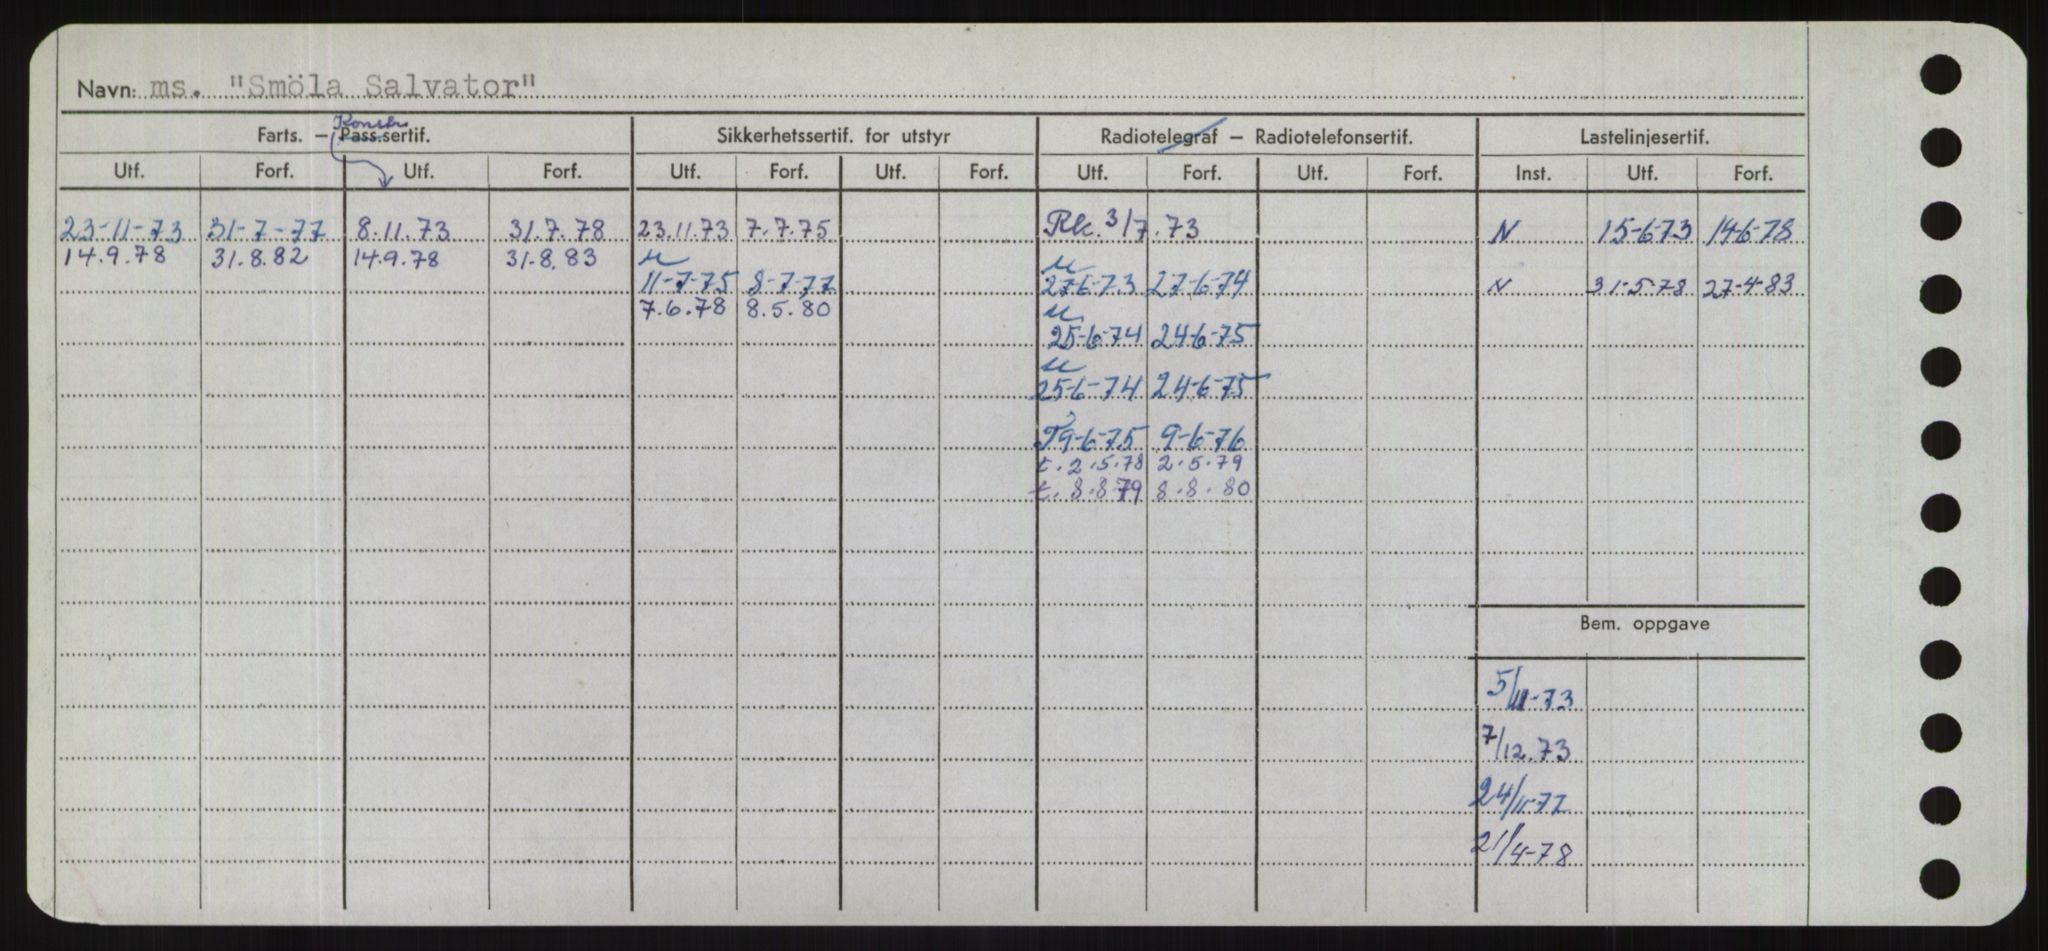 Navn: ms. "Smöla Salvator"
Konstr.
Farts. – Pass.sertif. Sikkerhetssertif. for utstyr Radiotelegraf – Radiotelefonsertif. Lastelinjesertif.
Utf. Forf. Utf. Forf. Utf. Forf. Utf. Forf. Utf. Forf. Utf. Forf. Inst. Utf. Forf.
23-11-73 31-7-77 8.11.73 31.7.78 23.11.73 7.7.75 Rk. 3/7.73 N 15-6-73 14-6-78
14.9.78 31.8.82 14.9.78 31.8.83
11-7-75 8-7-77 27-6-73 27-6-74 N 31-5-78 27-4-83
7.6.78 8.5.80
25-6-74 24-6-75
25-6-74 24-6-75
T 9-6-75 9-6-76
t. 2.5.78 2.5.79
t. 8.8.79 8.8.80
Bem. oppgave
5/11-73
7/12.73
24/11-77
21/4-78